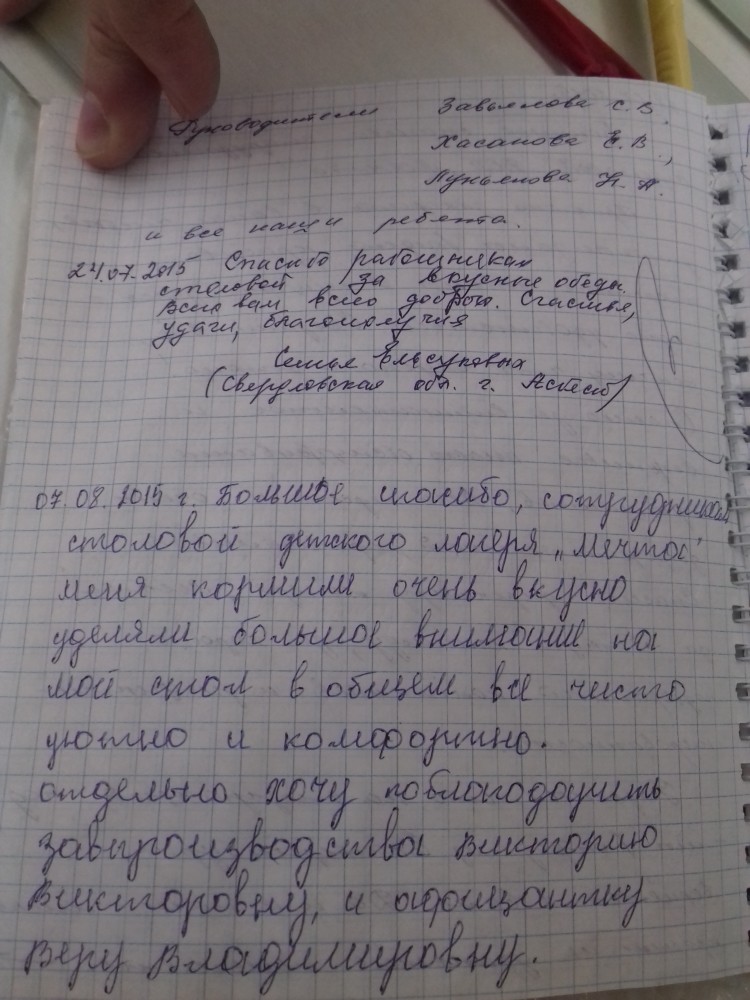 Руководители Завьялова С.В.
Хасанова Е.В.,
Лукьянова Н.А.
и все наши ребята.
24.07.2015 Спасибо работникам
столовой за вкусные обеды.
Всего вам всего доброго. Счастья,
удачи, благополучия
Семья
(Свердловская обл. г. Асбест)
07.08.2015 г. Большое спасибо, сотрудникам
столовой детского лагеря „Мечта"
меня кормили очень вкусно
уделяли большое внимание на
мой стол в общем все чисто
уютно и комфортно.
отдельно хочу поблагодарить
завпроизводства Викторию
Викторовну, и официантку
Веру Владимировну.